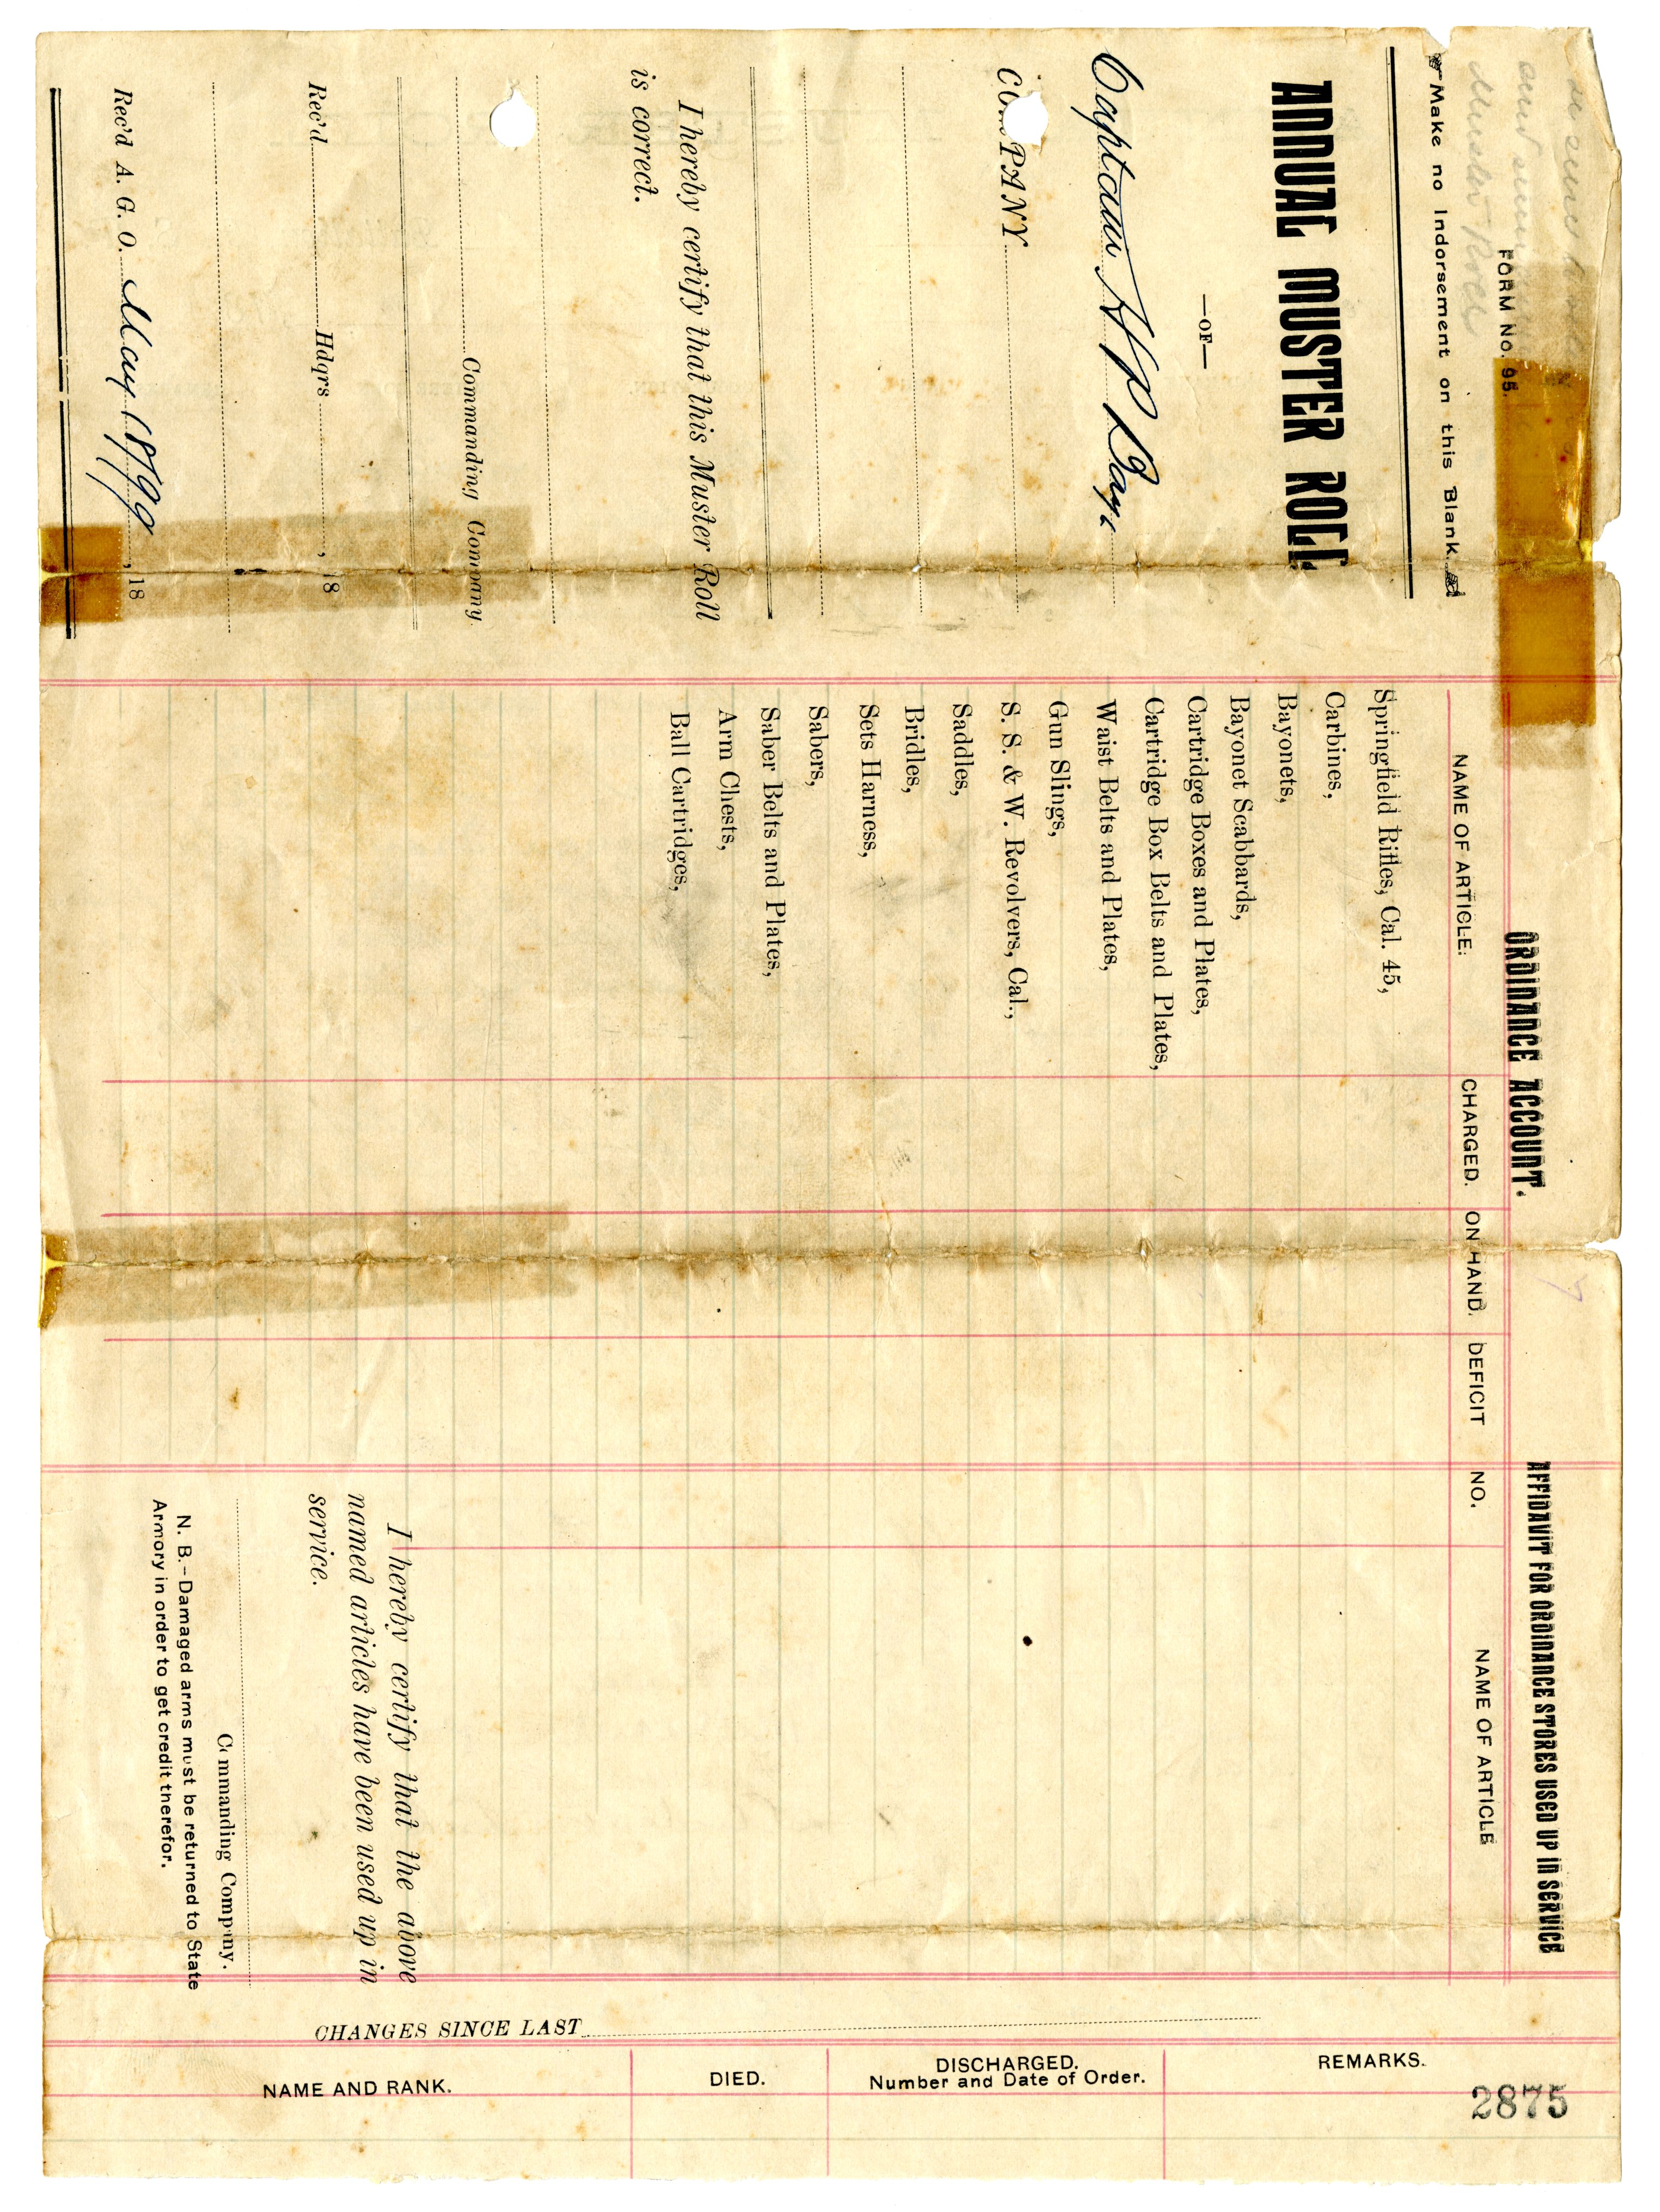 Muster Roll
FORM No. 95.
☞ Make no Indorsement on this Blank. ☜
ANNUAL MUSTER ROLL
—OF—
Captain H P
COMPANY
I hereby certify that this Muster Roll
is correct.
Commanding Company
Rec'd Hdqrs , 18
Rec'd A. G. O. May 18/99 , 18
ORDINANCE ACCOUNT.
NAME OF ARTICLE: CHARGED. ON HAND. DEFICIT
Springfield Rifles, Cal. 45,
Carbines,
Bayonets,
Bayonet Scabbards,
Cartridge Boxes and Plates,
Cartridge Box Belts and Plates,
Waist Belts and Plates,
Gun Slings,
S. S. & W. Revolvers, Cal.,
Saddles,
Bridles,
Sets Harness,
Sabers,
Saber Belts and Plates,
Arm Chests,
Ball Cartridges,
AFFIDAVIT FOR ORDINANCE STORES USED UP IN SERVICE
NO. NAME OF ARTICLE
I hereby certify that the above
named articles have been used up in
service.
Commanding Company.
N. B.-Damaged arms must be returned to State
Armory in order to get credit therefor.
CHANGES SINCE LAST
NAME AND RANK. DIED. DISCHARGED. REMARKS.
Number and Date of Order.
2875